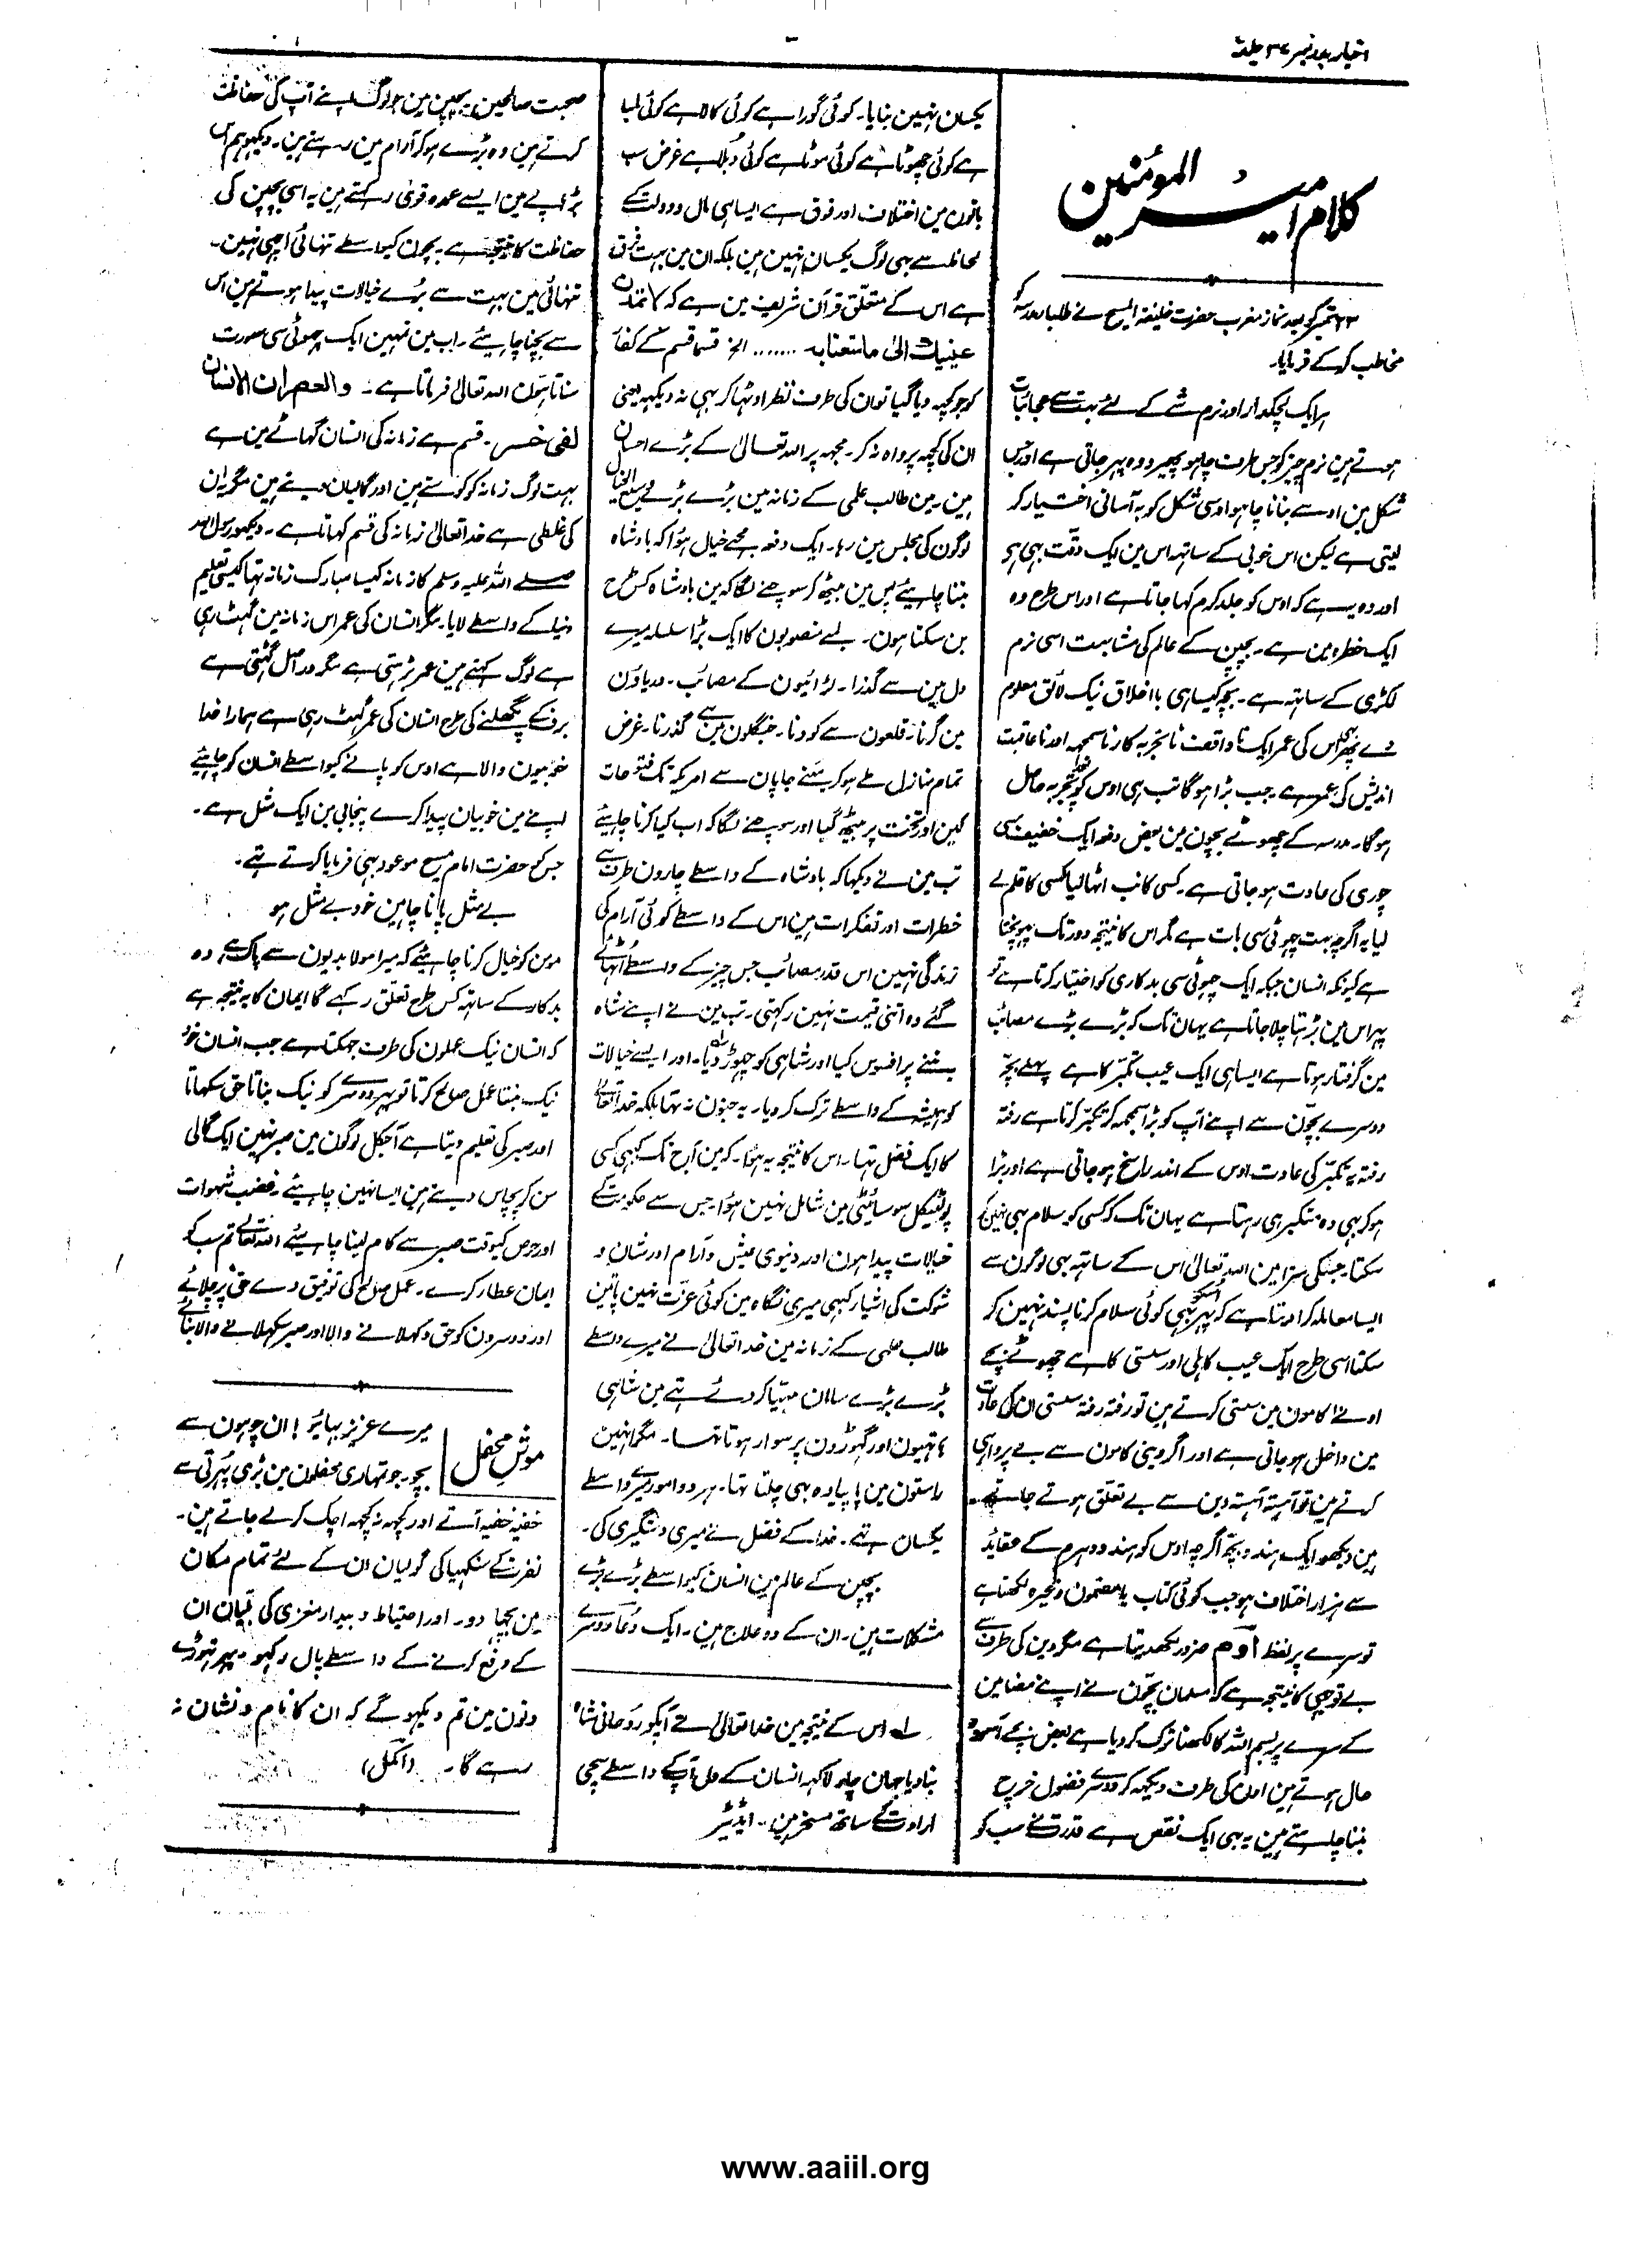 اخبار بدر نمبر ۳۴ جلد
کلام امیر المؤمنین
۲۲ ستمبر کو بعد نماز مغرب حضرت خلیفۃ المسیح نے طلبا مدرسہ کو
مخاطب کر کے فرمایا۔
ہر ایک لچکدار اور نرم شے کے لئے بہت سے عجائبات
ہوتے ہین نرم چیز کو جس طرف چاہو پھیر دو وہ پہر جاتی ہے اور جس
شکل مین اوسے بنانا چاہو اوسی شکل کو بہ آسانی اختیار کر
لیتی ہے لیکن اس خوبی کے ساتہہ اس مین ایک دقت بہی ہے
اور وہ یہ ہے کہ اوس کو جلد کرم کہا جاتا ہے اور اس طرح وہ
ایک خطرہ مین ہے۔ بچپن کے عالم کی مشابہت اسی نرم
لکڑی کے ساتہہ ہے۔ بچہ کیسا ہی با اخلاق نیک لائق معلوم
دے پھر بھی اس کی عمر ایک ناواقف ناتجربہ کار ناسمجہہ اور ناعاقبت
اندیش کی عمر ہے۔ جب بڑا ہو گا تب ہی اوس کو تجربہ حاصل
ہو گا۔ مدرسہ کے چھوٹے بچون مین بعض دفعہ ایک خفیف سی
چوری کی عادت ہو جاتی ہے۔ کسی کا نب اٹھا لیا کسی کا قلم لے
لیا یہ اگرچہ بہت چھوٹی سی بات ہے مگر اس کا نتیجہ دور تک پہونچتا
ہے کیونکہ انسان جبکہ ایک چھوٹی سی بدکاری کو اختیار کرتا ہے تو
پہر اس مین بڑہتا چلا جاتا ہے یہان تک کہ بڑے بڑے مصائب
مین گرفتار ہوتا ہے ایسا ہی ایک عیب تکبّر کا ہے پہلے بچّہ
دوسرے بچّون سے اپنے آپ کو بڑا سمجہہ کر تکبّر کرتا ہے رفتہ
رفتہ یہ تکبّر کی عادت اوس کے اندر راسخ ہو جاتی ہے اور بڑا
ہو کر بہی وہ متکبر ہی رہتا ہے یہان تک کہ کسی کو سلام بہی نہین کر
سکتا۔ جسکی سزا مین اللہ تعالیٰ اس کے ساتہہ بہی لوگون سے
ایسا معاملہ کرا دیتا ہے کہ پہر اسکو بہی کوئی سلام کرنا پسند نہین کر
سکتا اسی طرح ایک عیب کاہلی اور سستی کا ہے چھوٹے بچے
اونے کامون مین سستی کرتے ہین تو رفتہ رفتہ سستی ان کی عادت
مین داخل ہو جاتی ہے اور اگر دینی کامون سے بے پرواہی
کرتے ہین تو آہستہ آہستہ دین سے بے تعلق ہوتے جاتے
ہین دیکھو ایک ہندو بچّہ اگرچہ اوس کو ہندو دہرم کے عقاید
سے ہزار اختلاف ہو جب کوئی کتاب یا مضمون وغیرہ لکھتا ہے
تو سرے پر لفظ اوم ضرور لکھدیتا ہے مگر دین کی طرف سے
بے توجہی کا نتیجہ ہے کہ مسلمان بچّون نے اپنے مضامین
کے سرے پر بسم اللہ کا لکھنا ترک کر دیا ہے بعض بچے آسودہ
حال ہوتے ہین اون کی طرف دیکھہ کر دوسرے فضول خرچ
بننا چاہتے ہین یہ بہی ایک نقص ہے قدرت نے سب کو
یکسان نہین بنایا۔ کوئی گورا ہے کوئی کالا ہے کوئی لمبا
ہے کوئی چھوٹا ہے کوئی موٹا ہے کوئی دُبلا ہے غرض سب
باتون مین اختلاف اور فرق ہے ایسا ہی مال و دولت کے
لحاظ سے بہی لوگ یکسان نہین ہین بلکہ ان مین بہت فرق
ہے اس کے متعلق قرآن شریف مین ہے کہ لا تمدّن
عینیك الیٰ ما متعنا به ....... الخ قسما قسم کے کفار
کو جو کچہہ دیا گیا تو ان کی طرف نظر اوٹھا کر بہی نہ دیکہہ یعنی
ان کی کچہہ پرواہ نہ کر۔ مجہہ پر اللہ تعالیٰ کے بڑے احسان
ہین۔ مین طالب علمی کے زمانہ مین بڑے بڑے وسیع الخیال
لوگون کی مجلس مین رہا۔ ایک دفعہ مجھے خیال ہوا کہ بادشاہ
بننا چاہیئے پس مین بیٹھ کر سوچنے لگا کہ مین بادشاہ کس طرح
بن سکتا ہون۔ لمبے منصوبون کا ایک بڑا سلسلہ میرے
دل مین سے گذرا۔ لڑائیون کے مصائب۔ دریاؤن
مین گرنا۔ قلعون سے کودنا۔ جنگلون مین سے گذرنا۔ غرض
تمام منازل طے ہو کر مینے جاپان سے امریکہ تک فتوحات
کین اور تخت پر بیٹھ گیا اور سوچنے لگا کہ اب کیا کرنا چاہیئے
تب مین نے دیکہا کہ بادشاہ کے واسطے چارون طرف سے
خطرات اور تفکرات ہین اس کے واسطے کوئی آرام کی
زندگی نہین اس قدر مصائب جس چیز کے واسطے اُٹہائے
گئے وہ اتنی قیمت نہین رکہتی۔ تب مین نے اپنے شاہ
بننے پر افسوس کیا اور شاہی کو چھوڑ دیا۔ اور ایسے خیالات
کو ہمیشہ کے واسطے ترک کر دیا۔ یہ جنون نہ تہا بلکہ خدا تعالےٰ
کا ایک فضل تہا۔ اس کا نتیجہ یہ ہوا۔ کہ مین آج تک کبہی کسی
پولٹیکل سوسائیٹی مین شامل نہین ہوا۔ جس سے حکومت کے
خیالات پیدا ہون اور دنیوی عیش و آرام اور شان و
شوکت کی اشیار کبہی میری نگاہ مین کوئی عزّت نہین پاتین
طالب علمی کے زمانہ مین خدا تعالیٰ نے میرے واسطے
بڑے بڑے سامان مہیّا کر دئے تہے مین شاہی
ہاتہیون اور گہوڑون پر سوار ہوتا تہا۔ مگر انہین
راستون مین پا پیادہ بہی چلتا تہا۔ ہر دو امور میرے واسطے
یکسان تہے۔ خدا کے فضل نے میری دستگیری کی۔
بچپن کے عالم مین انسان کیواسطے بڑے بڑے
مشکلات ہین۔ ان کے دو علاج ہین۔ ایک دعا دوسرے
لہ اس کے نتیجہ مین خدا تعالیٰ نے آپکو روحانی شاہ
بنا دیا جہان چار لاکہہ انسان کے دل آپکے واسطے سچی
ارادت کے ساتھ مسخر ہین۔ ایڈیٹر
صحبت صالحین۔ بچپن مین جو لوگ اپنے آپ کی حفاظت
کرتے ہین وہ بڑے ہو کر آرام مین رہتے ہین۔ دیکہو ہم اس
بڑہاپے مین ایسے عمدہ قویٰ رکہتے ہین یہ اسی بچپن کی
حفاظت کا نتیجہ ہے۔ بچون کیواسطے تنہائی اچہی نہین۔
تنہائی مین بہت سے بُرے خیالات پیدا ہوتے ہین اس
سے بچنا چاہیئے۔ اب مین تمہین ایک چھوٹی سی سورت
سناتا ہون اللہ تعالیٰ فرماتا ہے۔ والعصر ان الانسان
لفی خسر۔ قسم ہے زمانہ کی انسان گھاٹے مین ہے
بہت لوگ زمانہ کو کوستے ہین اور گالیان دیتے ہین مگر یہ ان
کی غلطی ہے خدا تعالیٰ زمانہ کی قسم کہاتا ہے۔ دیکھو رسول اللہ
صلے اللہ علیہ وسلم کا زمانہ کیسا مبارک زمانہ تہا کیسی تعلیم
دنیا کے واسطے لایا۔ مگر انسان کی عمر اس زمانہ مین گہٹ رہی
ہے لوگ کہتے ہین عمر بڑہتی ہے مگر دراصل گھٹتی ہے
برف کے پگھلنے کی طرح انسان کی عمر گہٹ رہی ہے ہمارا خدا
خوبیون والا ہے اوس کو پانے کیواسطے انسان کو چاہیئے
اپنے مین خوبیان پیدا کرے پنجابی مین ایک مثل ہے۔
جس کو حضرت امام مسیح موعود بہی فرمایا کرتے تہے۔
بے مثل پانا چاہین خود بے مثل ہو
مومن کو خیال کرنا چاہیئے کہ میرا مولا بدیون سے پاک ہے۔ وہ
بدکار کے ساتہہ کس طرح تعلّق رکہے گا ایمان کا یہ نتیجہ ہے
کہ انسان نیک عملون کی طرف جھکتا ہے جب انسان خود
نیک بنتا عمل صالح کرتا تو پہر دوسرے کو نیک بناتا حق سکہاتا
اور صبر کی تعلیم دیتا ہے آجکل لوگون مین صبر نہین ایک گالی
سن کر پچاس دیتے ہین ایسا نہین چاہیئے۔ غضب شہوات
اور حرص کیوقت صبر سے کام لینا چاہیئے اللہ تعالےٰ تم سب کو
ایمان عطا کرے۔ عمل صالح کی توفیق دے حق پر چلائے
اور دوسرون کو حق دکہلانے والا اور صبر سکہلانے والا بنائے
موشِ محفل
میرے عزیز بہائیو! ان چوہون سے
بچو۔ جو تمہاری محفلون مین بڑی پُھرتی سے
خفیہ خفیہ آتے اور کچہہ نہ کچہہ اچک کر لے جاتے ہین۔
نفرت کے سنکھیا کی گولیان ان کے لئے تمام مکان
مین بچہا دو۔ اور احتیاط و بیدار مغزی کی بلیان ان
کے دفع کرنے کے واسطے پال رکہو۔ پہر تہوڑے
دنون مین تم دیکہو گے کہ ان کا نام و نشان نہ
رہے گا۔ (اکمل)
www.aaiil.org